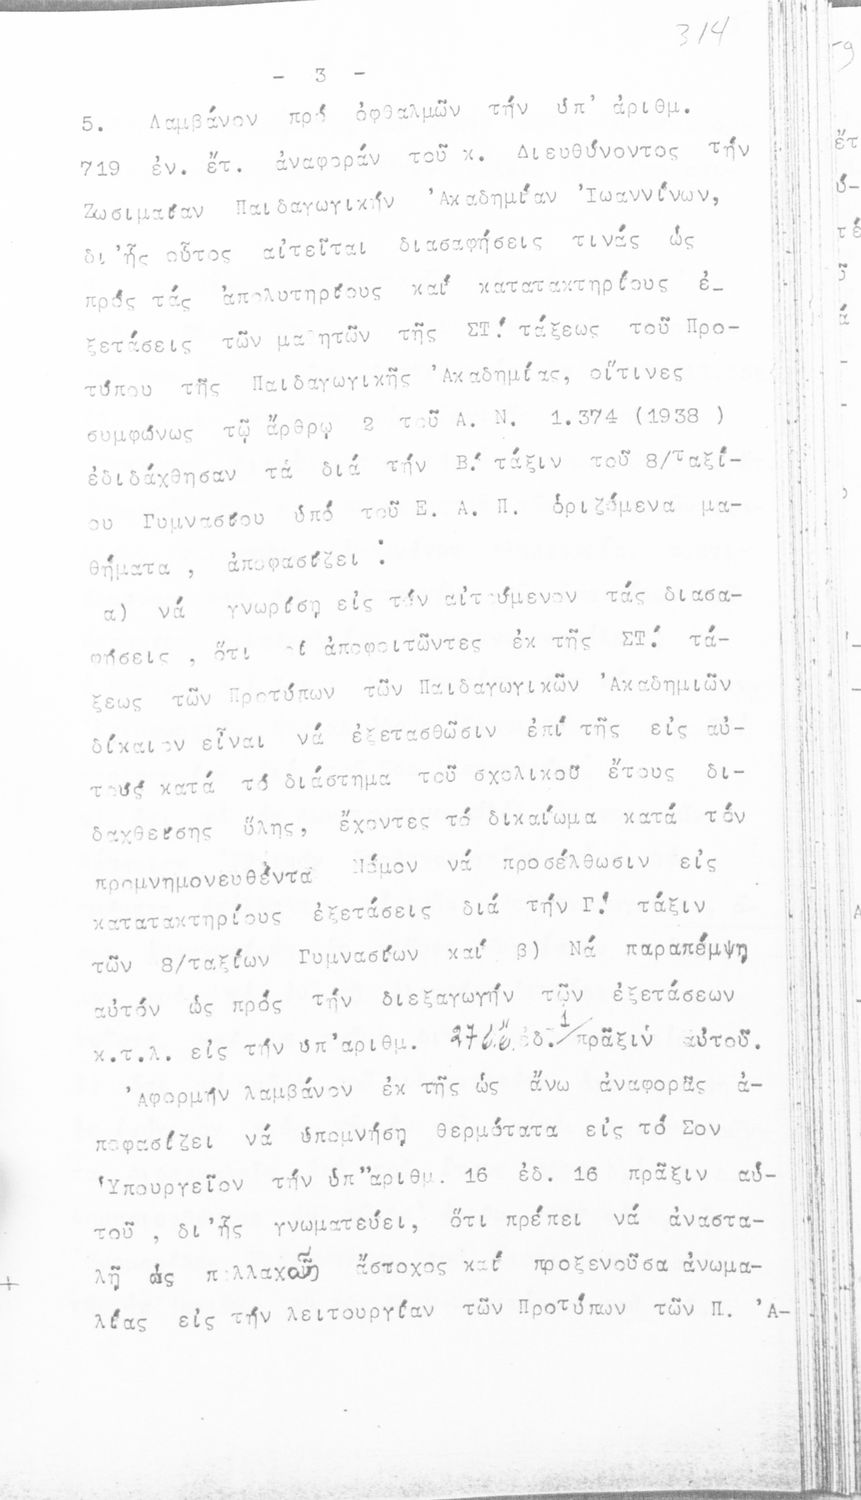 314
- 3 -
5. Λαμβάνον πρό ὀφθαλμῶν τήν ὑπ' ἀριθμ.
719 ἐν. ἔτ. ἀναφοράν τοῦ κ. Διευθύνοντος τήν
Ζωσιμαίαν Παιδαγωγικήν 'Ακαδημίαν 'Ιωαννίνων,
δι'ἧς οὗτος αἰτεῖται διασαφήσεις τινάς ὡς
πρός τάς ἀπολυτηρίους καί κατατακτηρίους ἐ-
ξετάσεις τῶν μαθητῶν τῆς ΣΤ! τάξεως τοῦ Προ-
τύπου τῆς Παιδαγωγικῆς 'Ακαδημίας, οἵτινες
συμφώνως τῷ ἄρθρῳ 2 τοῦ Α. Ν. 1.374 (1938 )
ἐδιδάχθησαν τά διά τήν Β! τάξιν τοῦ 8/ταξί-
ου Γυμνασίου ὑπό τοῦ Ε. Α. Π. ὁριζόμενα μα-
θήματα , ἀποφασίζει :
α) νά γνωρίσῃ εἰς τόν αἰτούμενον τάς διασα-
φήσεις , ὅτι οἱ ἀποφοιτῶντες ἐκ τῆς ΣΤ! τά-
ξεως τῶν Προτύπων τῶν Παιδαγωγικῶν 'Ακαδημιῶν
δίκαιον εἶναι νά ἐξετασθῶσιν ἐπί τῆς εἰς αὐ-
τούς κατά τό διάστημα τοῦ σχολικοῦ ἔτους δι-
δαχθείσης ὕλης, ἔχοντες τό δικαίωμα κατά τόν
προμνημονευθέντα Νόμον νά προσέλθωσιν εἰς
κατατακτηρίους ἐξετάσεις διά τήν Γ! τάξιν
τῶν 8/ταξίων Γυμνασίων καί β) Νά παραπέμψῃ
αὐτόν ὡς πρός τήν διεξαγωγήν τῶν ἐξετάσεων
κ.τ.λ. εἰς τήν ὑπ'αριθμ. ἐδ. 1 πρᾶξιν αὐτοῦ.
'Αφορμήν λαμβάνον ἐκ τῆς ὡς ἄνω ἀναφορᾶς ἀ-
ποφασίζει νά ὑπομνήσῃ θερμότατα εἰς τό Σον
'Υπουργεῖον τήν ὑπ"αριθμ. 16 ἐδ. 16 πρᾶξιν αὐ-
τοῦ , δι'ἧς γνωματεύει, ὅτι πρέπει νά ἀναστα-
λῇ ὡς πολλαχοῦ ἄστοχος καί προξενοῦσα ἀνωμα-
λίας εἰς τήν λειτουργίαν τῶν Προτύπων τῶν Π. 'Α-